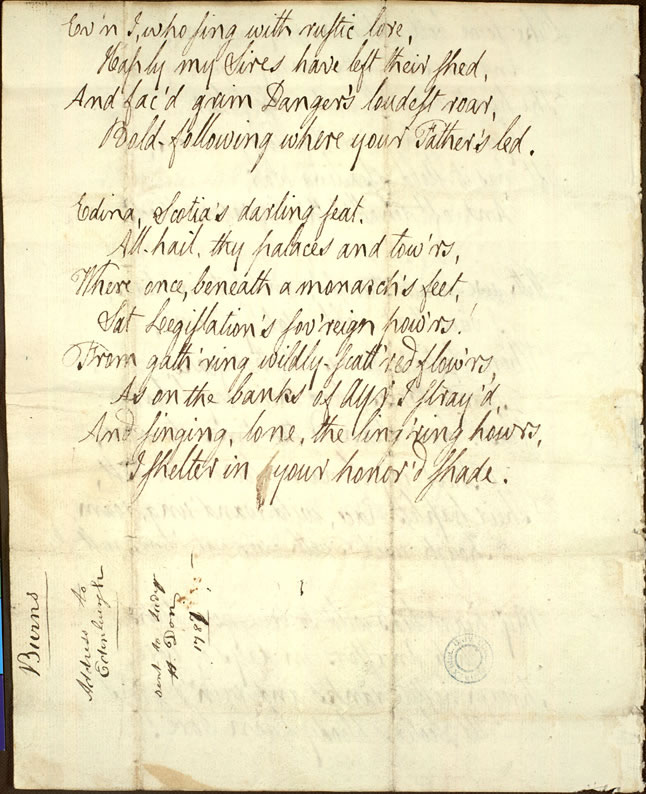 Ev'n I, who sing with rustic lore,
Haply my Sires have left their shed,
And fac'd grim Danger's loudest roar,
Bold-following where your Father's led.
Edina, Scotia's darling seat.
All-hail, thy palaces and tow'rs,
Where once, beneath a monarch's feet,
Sat Legislation's sov'reign pow'rs!
From gath'ring wildly-scatt'red flow'rs,
As on the banks of Ayr I stray'd,
And singing, lone, the ling'ring hours,
I shelter in your honor'd shade.
Burns
Address to
Edinburgh
sent to Lady
H Don
1787